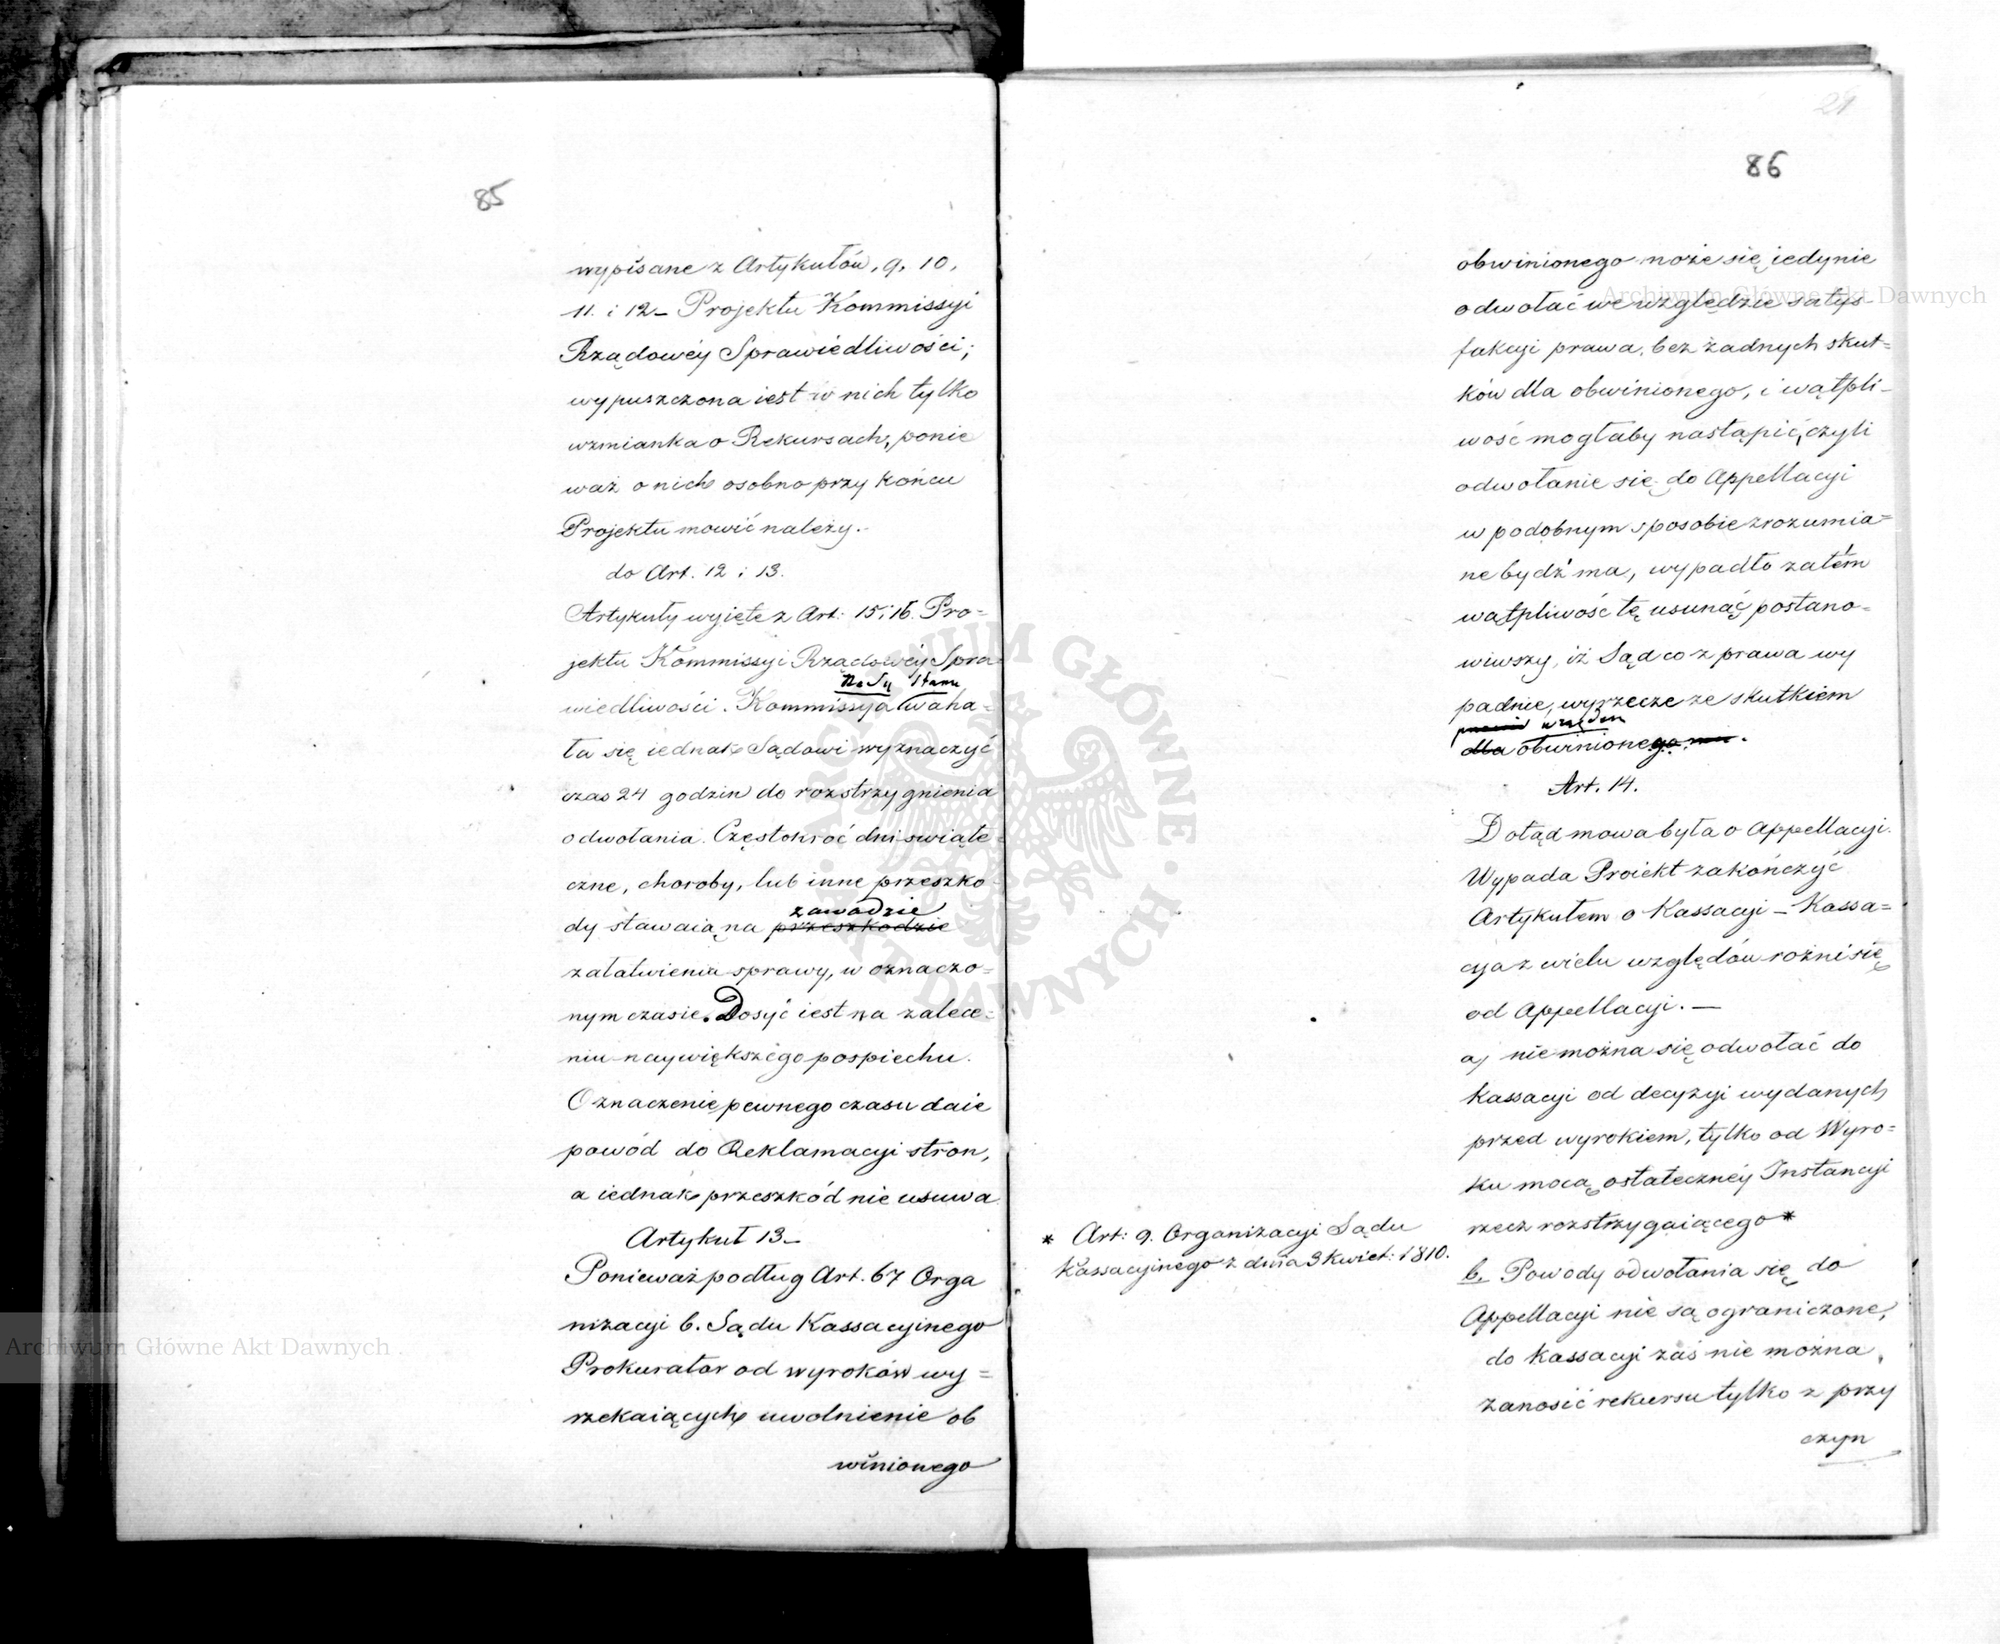 85
wypisane z Artykułów, 9, 10,
11. i 12 – Projektu Kommissyi
Rządowéy Sprawiedliwości;
wypuszczona iest w nich tylko
wzmianka o Rekursach, ponie
waż o nich osobno przy końcu
Projektu mowić należy.-
do Art. 12 i 13.
Artykuły wyięte z Art: 15 i 16. Pro=
jektu Kommissyi Rządowéy Spra
Rady Stanu
wiedliwości. Kommissyia waha=
ła się iednak Sądowi wyznaczyć
czas 24 godzin do rozstrzygnienia
odwołania. Częstokroć dni swiąte=
czne, choroby, lub inne przeszko
zawadzie
dy stawaią na przeszkodzie
załatwienia sprawy, w oznaczo=
nym czasie. Dosyć iest na zalece=
niu naywiększégo pospiechu.
Oznaczenie pewnego czasu daie
powód do Reklamacyi stron,
a iednak przeszkód nie usuwa
Artykuł 13 –
Ponieważ podług Art. 67 Orga
nizacyi b. Sądu Kassacyinego
Prokurator od wyroków wy=
rzekaiących uwolnienie ob
winionego
86
obwinionego może się iedynie
odwołać we względzie satys
fakcyi prawa, bez żadnych skut=
ków dla obwinionego, i wątpli-
wość mogłaby nastąpić, czyli
odwołanie się do Appellacyi
w podobnym sposobie zrozumia=
ne bydź ma, wypadło zatém
wątpliwość tę usunąć postano=
wiwszy, iż Sąd co z prawa wy
padnie, wyrzecze ze skutkiem
względem
dla obwinionego
Art. 14.
Dotąd mowa była o Appellacyi.
Wypada Proiekt zakończyć
Artykułem o Kassacyi – Kassa=
cyia z wielu względów rożni się
od Appellacyi. –
a, nie można się odwołać do
Kassacyi od decyzyi wydanych
przed wyrokiem, tylko od Wyro=
ku mocą ostatecznéy Instancyi
rzecz rozstrzygaiącego *
* Art: 9. Organizacyi Sądu
Kassacyinego z dnia 3 Kwiet: 1810.
b. Powody odwołania się do
Appellacyi nie są ograniczone,
do Kassacyi zaś nie można
zanosić rekursu tylko z przy
czyn
Archiwum Główne Akt Dawnych
Archiwum Główne Akt Dawnych
ARCHIWUM GŁÓWNE AKT DAWNYCH